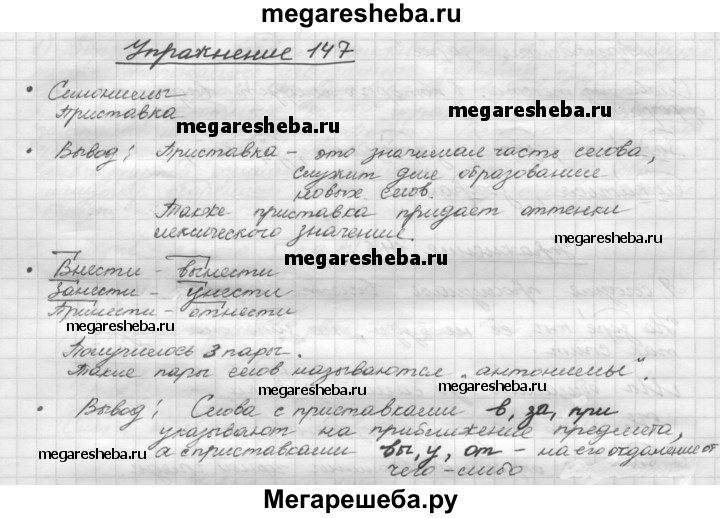 megaresheba.ru
Упражнение 147
• Синонимы
Приставка
megaresheba.ru
megaresheba.ru
• Вывод: Приставка – это значимая часть слова,
служит для образования
новых слов.
Также приставка придает оттенки
лексического значения.
megaresheba.ru
megaresheba.ru
• Внести – вынести
Занести – унести
Принести – отнести
megaresheba.ru
Получилось 3 пары.
Такие пары слов называются „антонимы".
megaresheba.ru
• Вывод: Слова с приставками в, за, при
указывают на приближение предмета,
а с приставками вы, у, от – на его отдаление от
чего-либо
megaresheba.ru
megaresheba.ru
Мегарешеба.ру